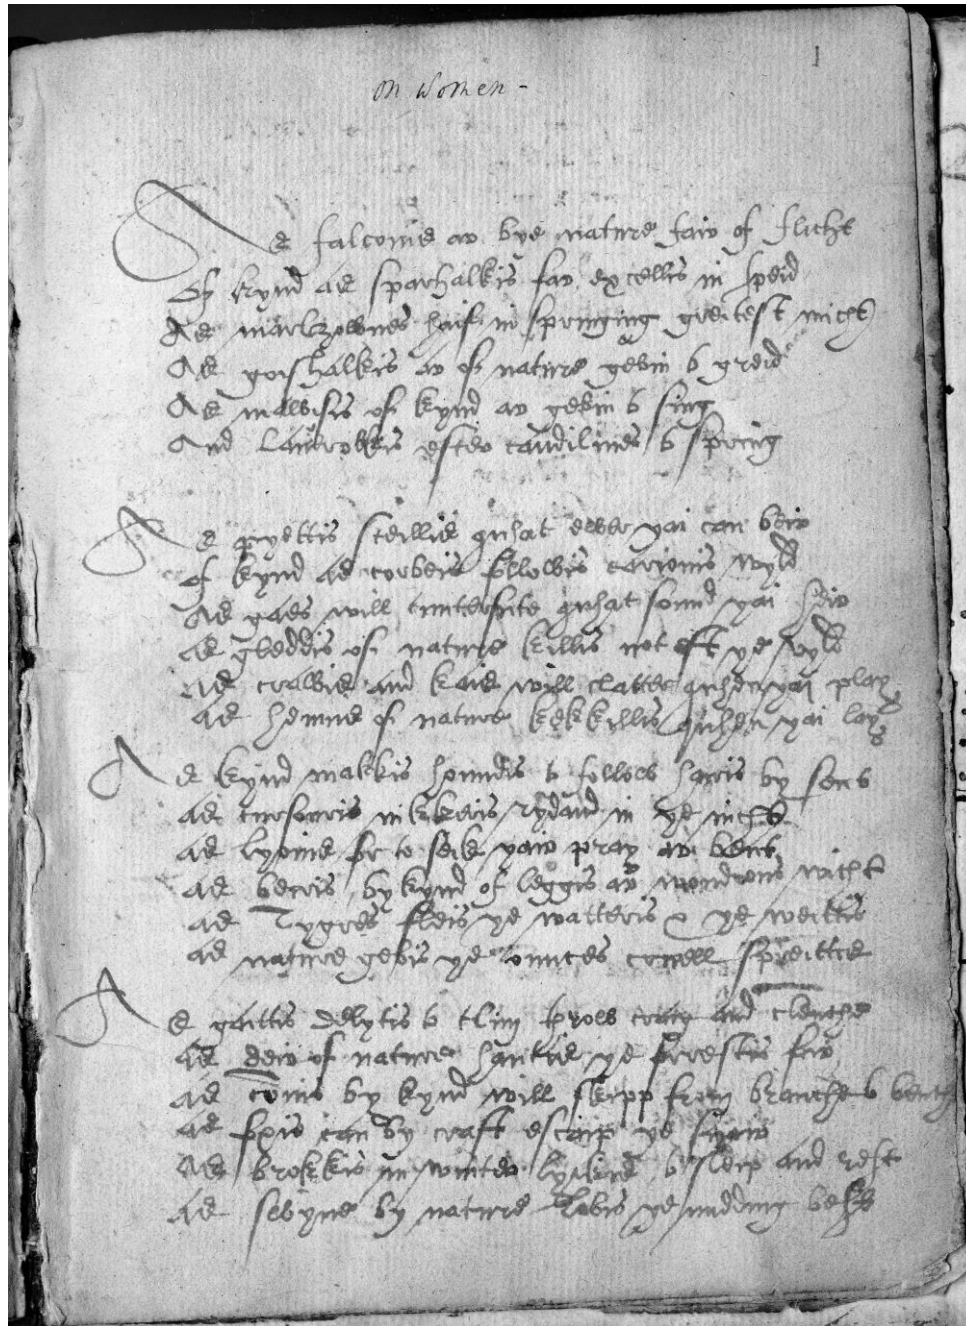 1
On Women -
As falconis ar bye nature fair of flicht
Of kynd as sparhalkis far excellis in speid
As marlzownes haif in springing greitest micht
As goishalkis ar of nature gevin to greid
As mavisis of kynd ar gevin to sing
And laivrokkis efter candilmes to spring
As pyettis steillis quhat ever yai can beir
Of kynd as corbeis followis carionis wyld
As gaes will cunterfute quhat sound yai heir
As gleddis of nature killis not oft ye
As crawis and kais will clatter quhen yai play
As hennis of nature kekkillis quhen yai lay
As kynd makkis houndis to follow hairis by sent
As cursouris nikkeris rydand in ye nicht
As lyonis for to seik yair pray ar bent
As beiris by kynd of leggis ar wondrous wicht
As Tygres fleis ye watteris & ye weittis
As nature gevis ye ounces crewell spreittis
As gaittis delytis to clim throw craig and clewche
As deir of nature hantis ye forrestis fair
As cunis by kynd will skipp from branche to
As foxis can by craft escaip ye snair
As brokkis in winter lyikis to sleip and rest
As swyne by nature lovis ye midding best